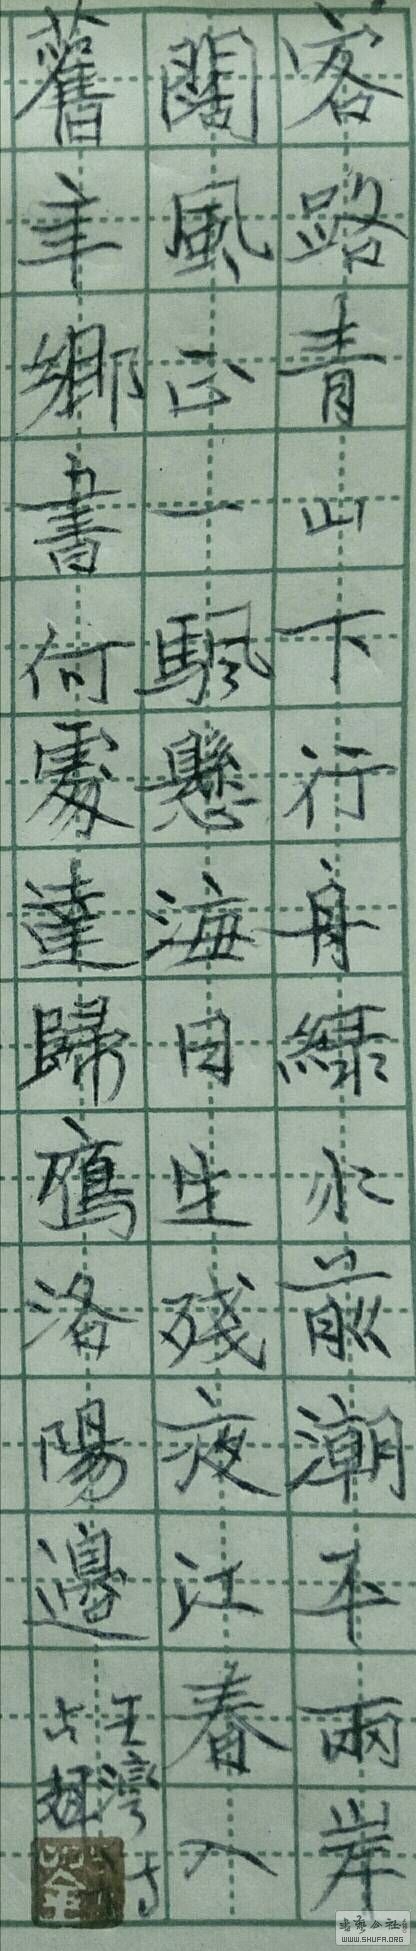 客路青山下行舟綠水前潮平兩岸
闊風正一颿懸海日生殘夜江春入
舊年鄉書何處達歸鴈洛陽邊
王灣詩
書藝公社
WWW.SHUFA.ORG